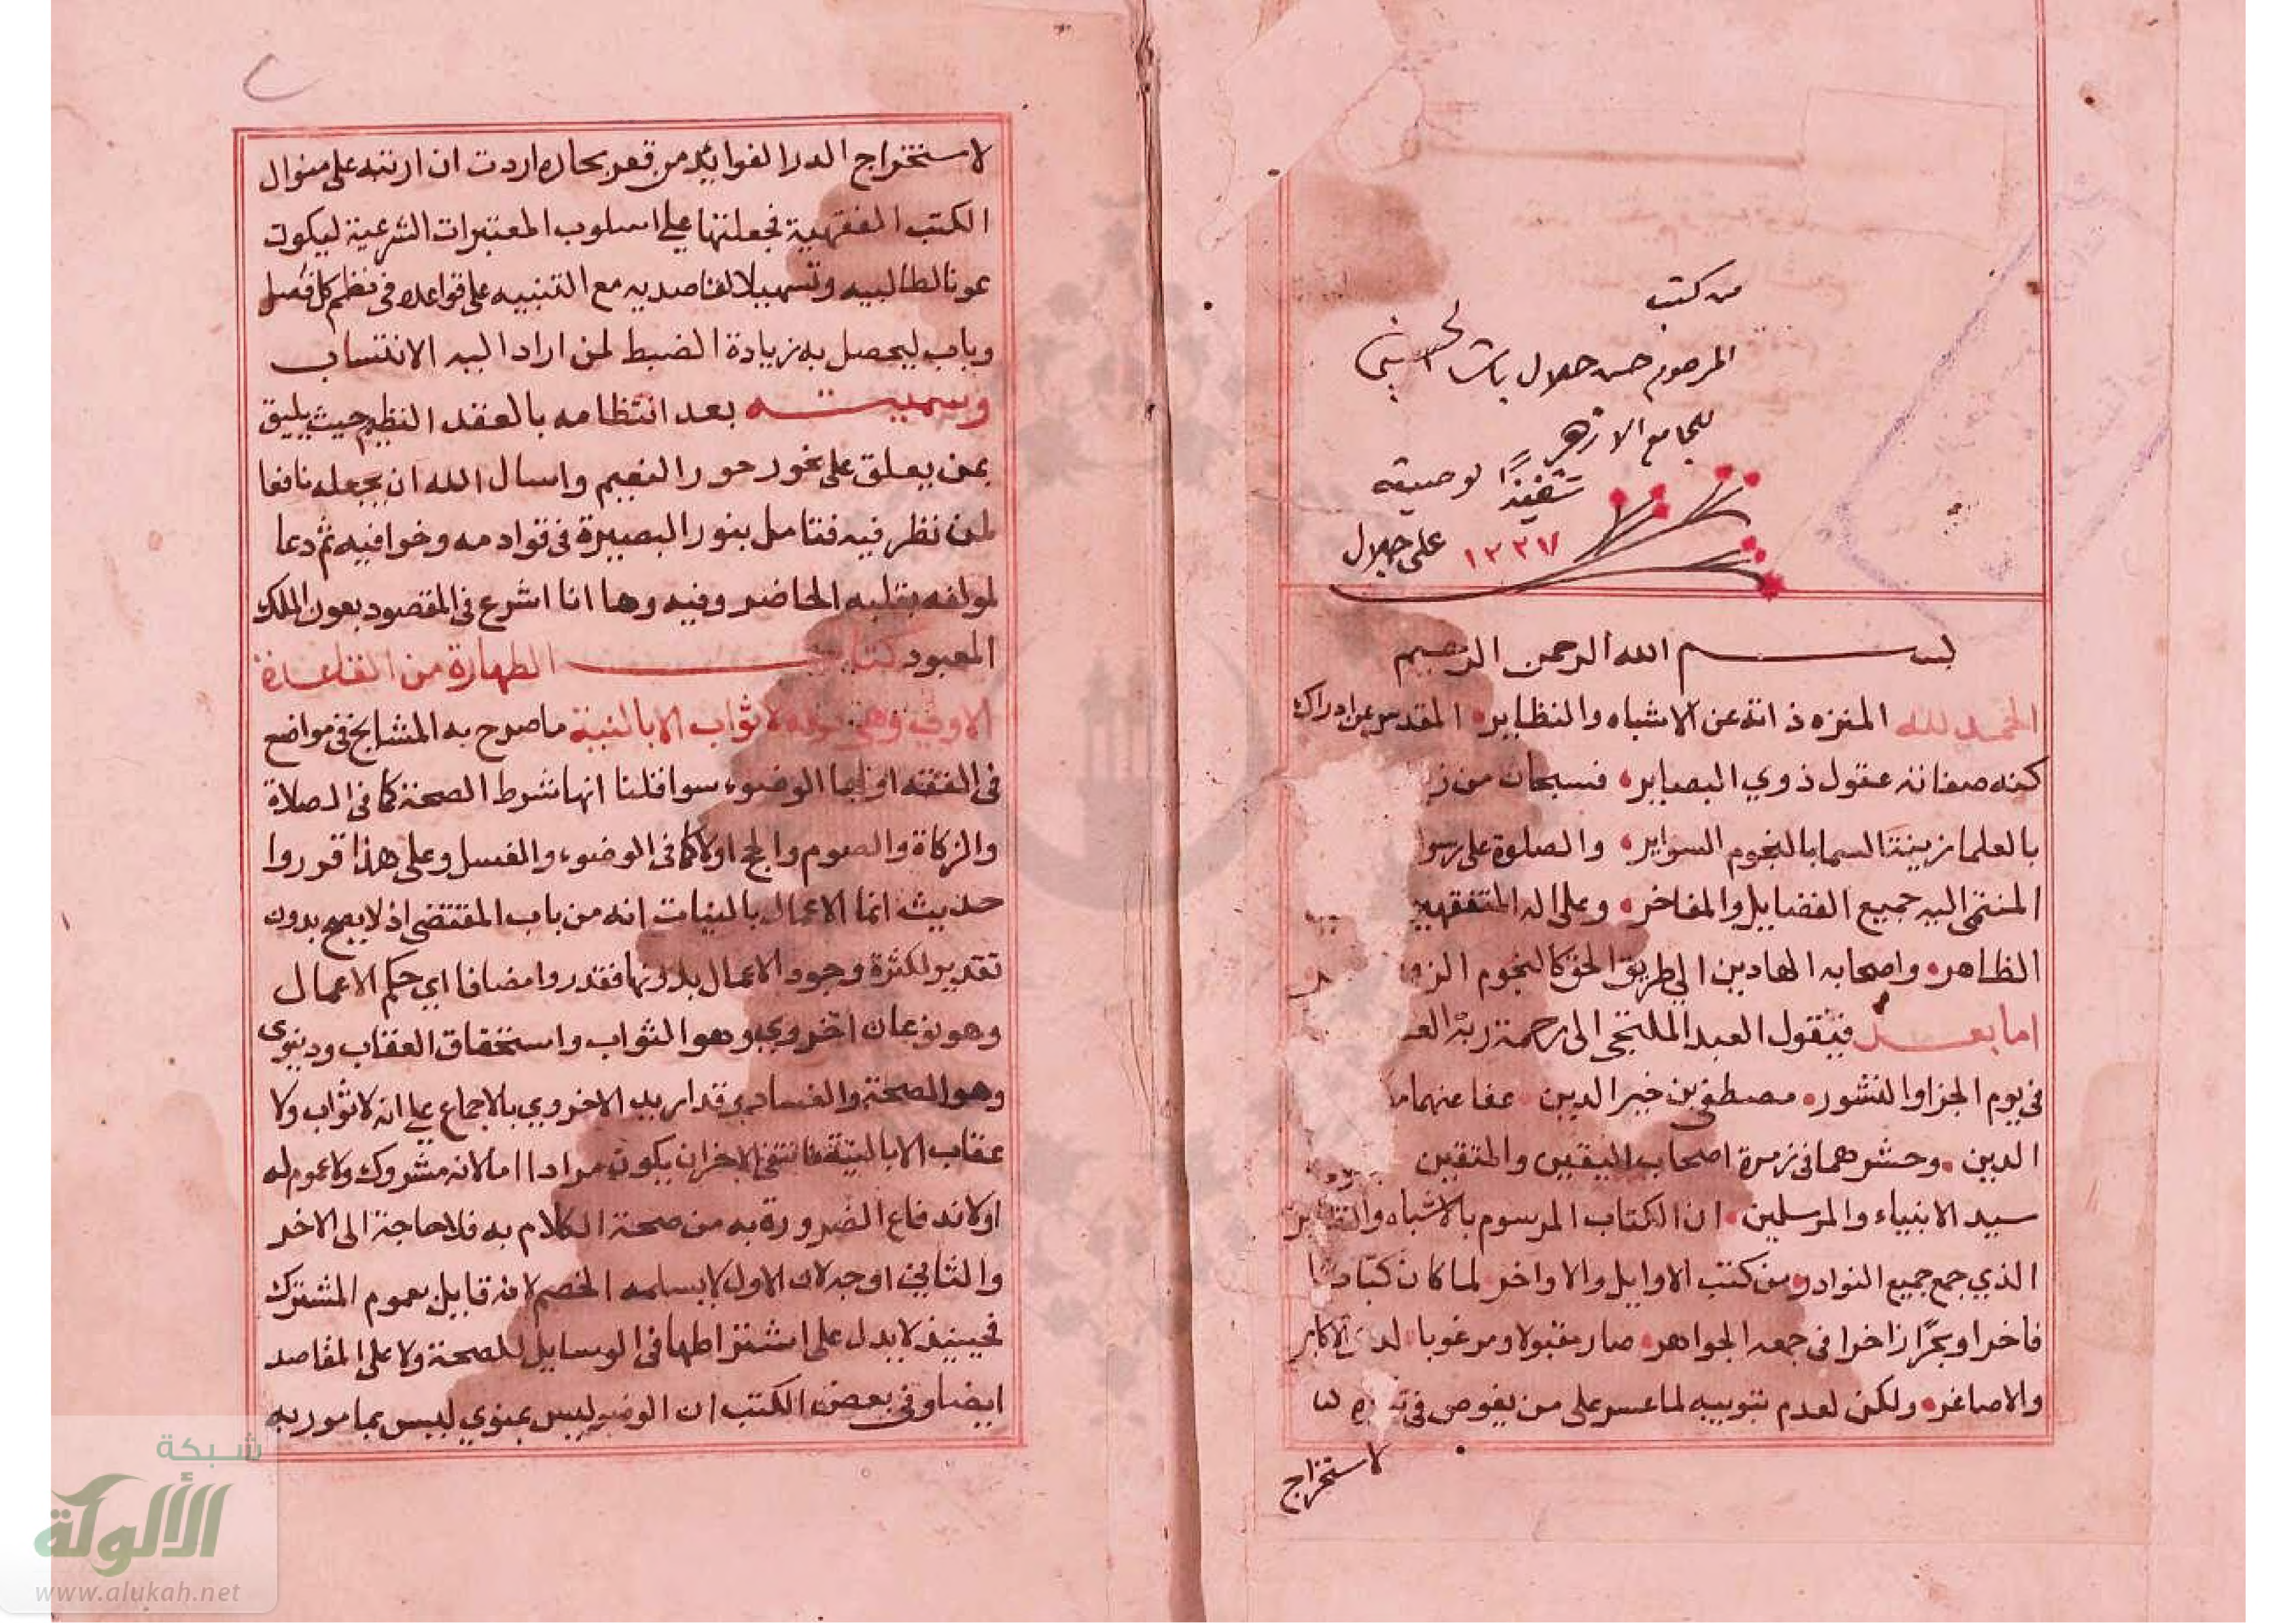 من كتب
المرحوم حسن جلال باشا الحسيني
للجامع الازهر
تنفيذا لوصيته
١٣٣٧ على جلال
بسم الله الرحمن الرحيم
الحمد لله المنزه ذاته عن الاشباه والنظاير المقدس عن ادراك
كنه صفاته عقول ذوي البصاير فسبحان من
بالعلما زينة السما بالنجوم السواير والصلوة على
المنتمى اليه جميع الفضايل والمفاخر وعلى اله
الظاهر واصحابه الهادين الى طريق الحق كالنجوم
اما بعد فيقول العبد الملتجى الى رحمة ربه
فى يوم الجزا والنشور مصطفى بن خير الدين عفا عنهما
الدين وحشرهما فى زمرة اصحاب اليقين والمتقين
سيد الانبياء والمرسلين ان الكتاب المرسوم بالاشباه والنظاير
الذي جمع جميع النوادر من كتب الاوايل والاواخر لما كان كتابا
فاخرا وبحرا زاخرا فى جمعه الجواهر صار مقبولا ومرغوبا لدى الاكابر
والاصاغر ولكن لعدم تبويبه لما عسر على من يغوص فى
لاستخراج
لاستخراج الدر الفوايد من قعر بحاره اردت ان ارتبه على منوال
الكتب الفقهية فجعلتها على اسلوب المعتبرات الشرعية ليكون
عونا لطالبيه وتسهيلا لقاصديه مع التنبيه على قواعده فى نظم كل فصل
وباب ليحصل به زيادة الضبط لمن اراد اليه الانتساب
وسميته بعد انتظامه بالعقد النظيم حيث يليق
بمن يعلق على نحور حور النعيم واسال الله ان يجعله نافعا
لمن نظر فيه فتامل بنور البصيرة فى قوادمه وخوافيه ثم دعا
لمولفه بقلبه الحاضر وفيه وها انا اشرع فى المقصود بعون الملك
المعبود كتاب الطهارة من القاعدة
الاولى وهى قوله لا ثواب الا بالنية ما صرح به المشايخ فى مواضع
فى الفقه اولها الوضوء سوا قلنا انها شرط الصحة كما فى الصلاة
والزكاة والصوم والحج اولا كما فى الوضوء والغسل وعلى هذا قرروا
حديث انما الاعمال بالنيات انه من باب المقتضى اذ لا يصح بدون
تقدير لكثرة وجود الاعمال بدونها فقدروا مضافا اي حكم الاعمال
وهو نوعان اخروي وهو الثواب واستحقاق العقاب ودنيوى
وهو الصحة والفساد وقد اريد الاخروي بالاجماع على انه لا ثواب ولا
عقاب الا بالنية فانتفى الاخر ان يكون مرادا اما لانه مشروك ولا عموم له
اولاندفاع الضرورة به من صحة الكلام به فلا حاجة الى الاخر
والثاني اوجه لان الاول لا يسلمه الخصم لانه قايل بعموم المشترك
فحينيذ لا يدل على اشتراطها فى الوسايل للصحة ولا على المقاصد
ايضا وفى بعض الكتب ان الوضو ليس بمنوي ليس بمامور به
شبكة
الألوكة
www.alukah.net